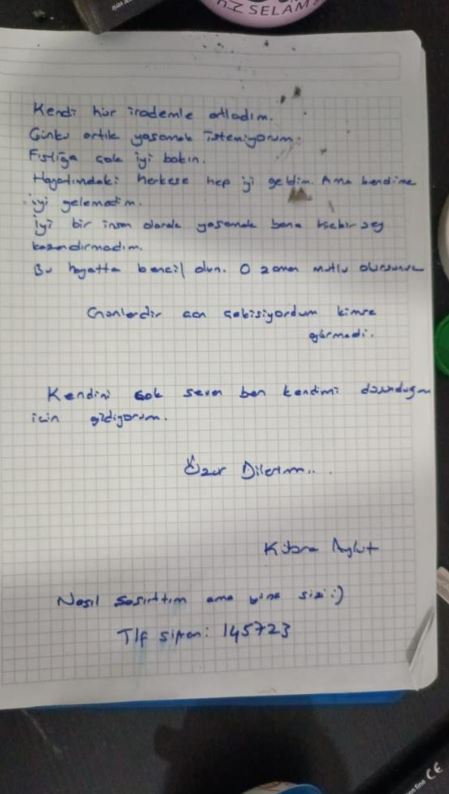 SELAM
Kendi hür irademle atladım.
Çünkü artık yaşamak istemiyorum.
Fıstığa çok iyi bakın.
Hayatımdaki herkese hep iyi geldim. Ama kendime
iyi gelemedim.
İyi bir insan olarak yaşamak bana hiçbir şey
kazandırmadım.
Bu hayatta bencil olun. O zaman mutlu olursunuz
Günlerdir acı çekiyordum kimse
görmedi.
Kendini çok seven ben kendimi düşündüğüm
için gidiyorum.
Özür Dilerim...
Kübra Aykut
Nasıl şaşırttım ama yine sizi :)
Tlf şifrem: 145723
CE